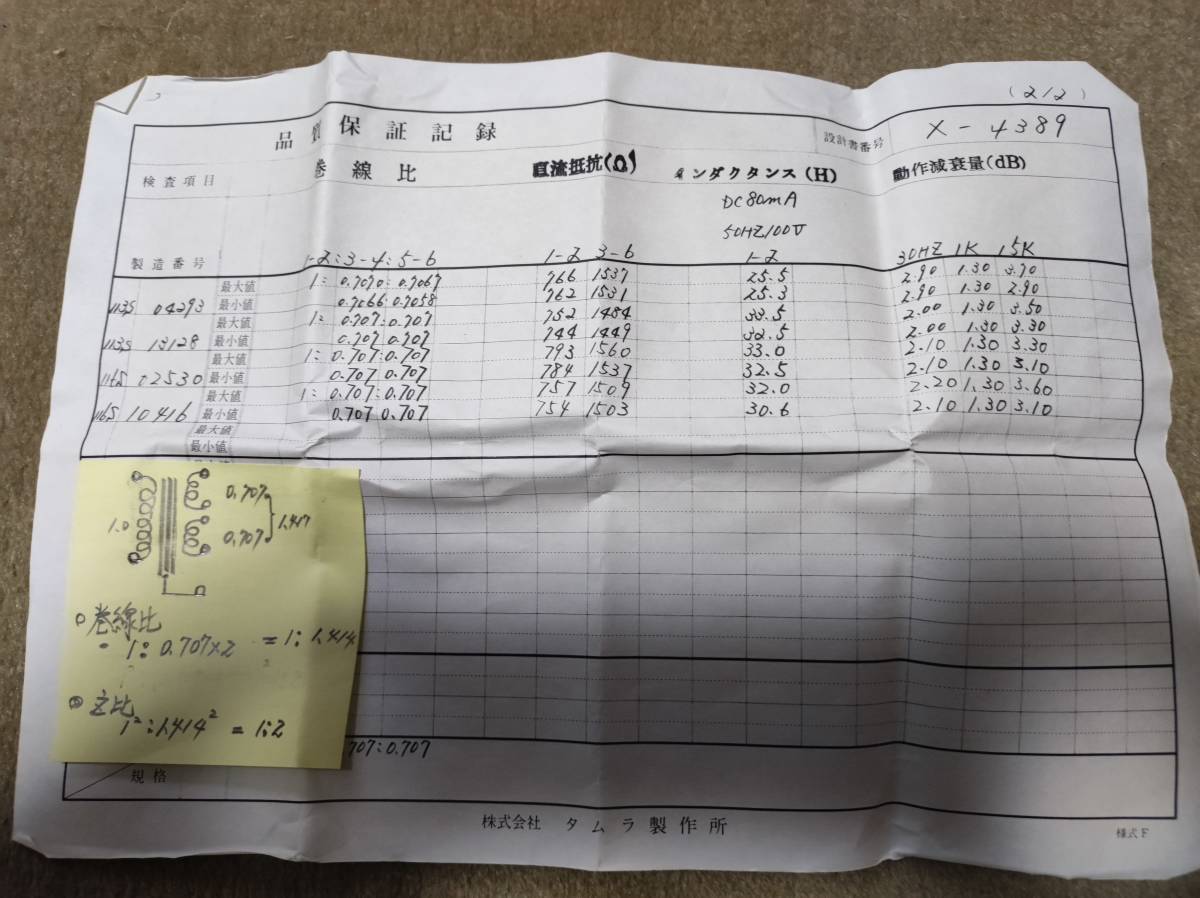 (2/2)
品質保証記録
設計書番号 X-4389
検査項目 巻線比 直流抵抗(Ω) インダクタンス(H) 動作減衰量(dB)
DC80mA
50HZ/100V
製造番号 1-2:3-4:5-6 1-2 3-6 1-2 30HZ 1K 15K
最大値 1: 0.7070:0.7067 766 1537 25.5 2.90 1.30 3.70
04293 最小値 0.7066:0.7058 762 1531 25.3 2.90 1.30 2.90
最大値 1: 0.707:0.707 752 1484 33.5 2.00 1.30 3.50
13128 最小値 0.707:0.707 744 1449 32.5 2.00 1.30 3.30
最大値 1: 0.707:0.707 793 1560 33.0 2.10 1.30 3.30
02530 最小値 0.707 0.707 784 1537 32.5 2.10 1.30 3.10
最大値 1: 0.707:0.707 757 1509 32.0 2.20 1.30 3.60
10416 最小値 0.707 0.707 754 1503 30.6 2.10 1.30 3.10
最大値
最小値
0.707
1.0
0.707
巻線比
1:0.707×2 =1:1.414
1²:1.414² = 1:2
707:0.707
規格
株式会社 タムラ製作所
様式F